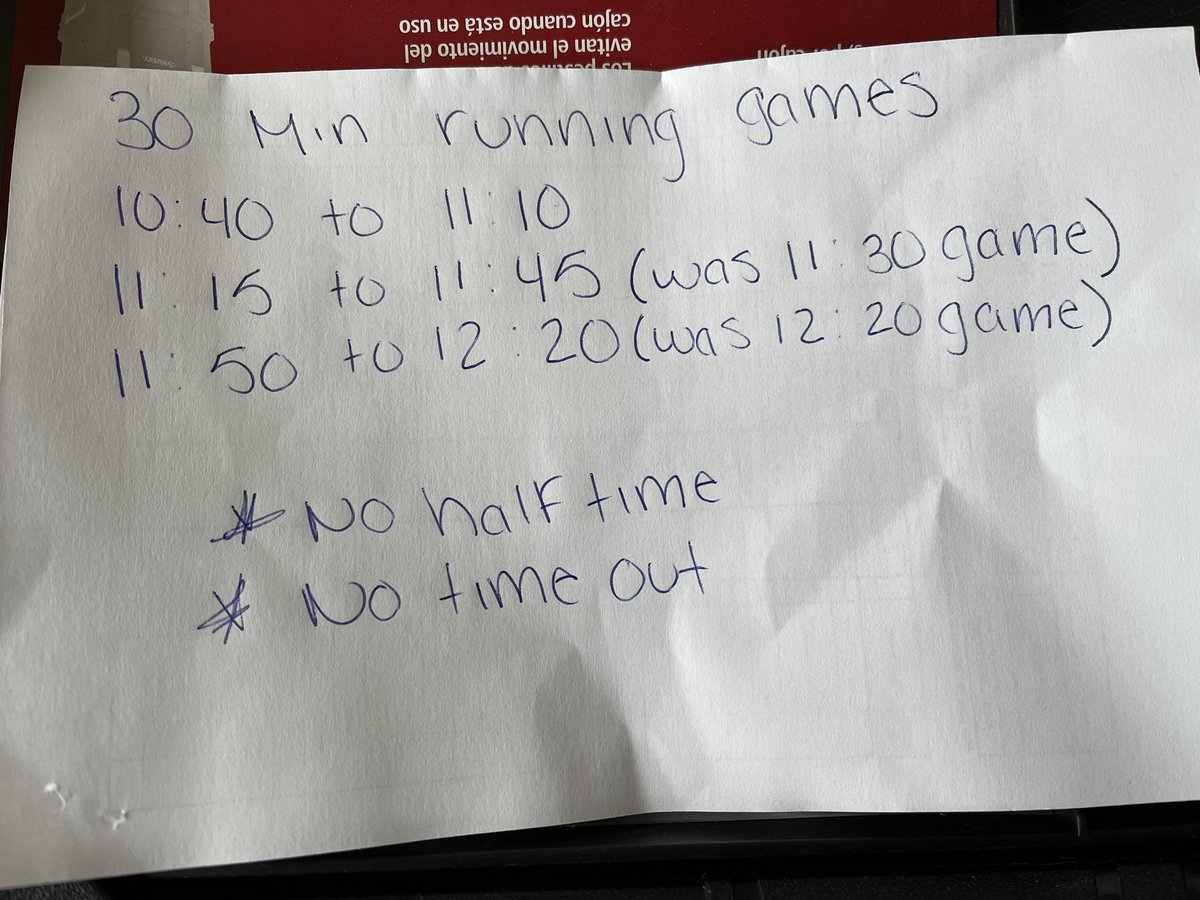 Los
evitan el movimiento del
cajón cuando está en uso
cajón
HUSKY
30 Min running games
10:40 to 11:10
11:15 to 11:45 (was 11:30 game)
11:50 to 12:20 (was 12:20 game)
* No half time
* No time out